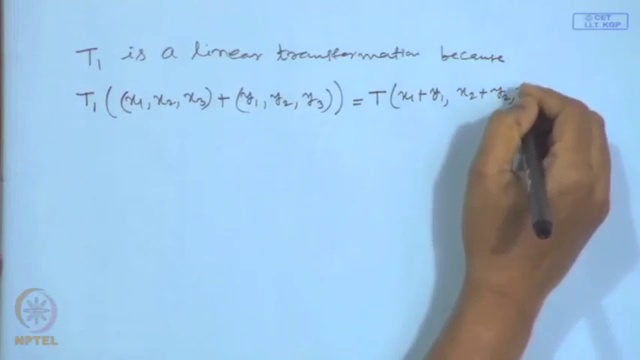 © CET
I.I.T. KGP
T₁ is a linear transformation because
T₁((x₁, x₂, x₃) + (y₁, y₂, y₃)) = T(x₁+y₁, x₂+y₂,
NPTEL